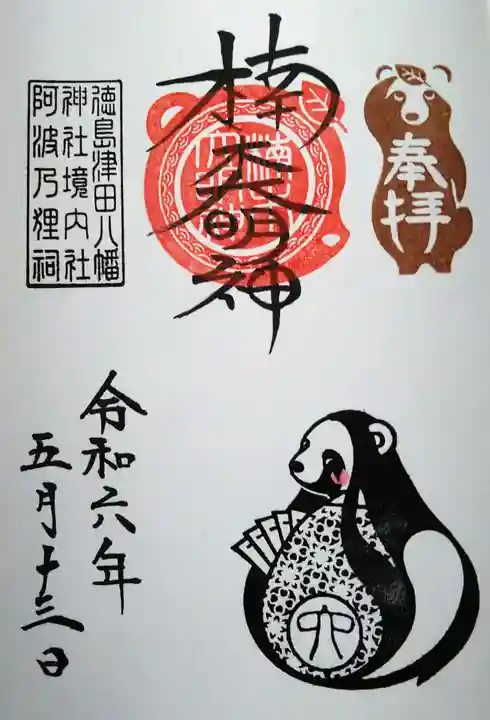 奉拝
楠木大明神
徳島津田八幡
神社境内社
阿波乃狸祠
令和六年
五月十三日
六